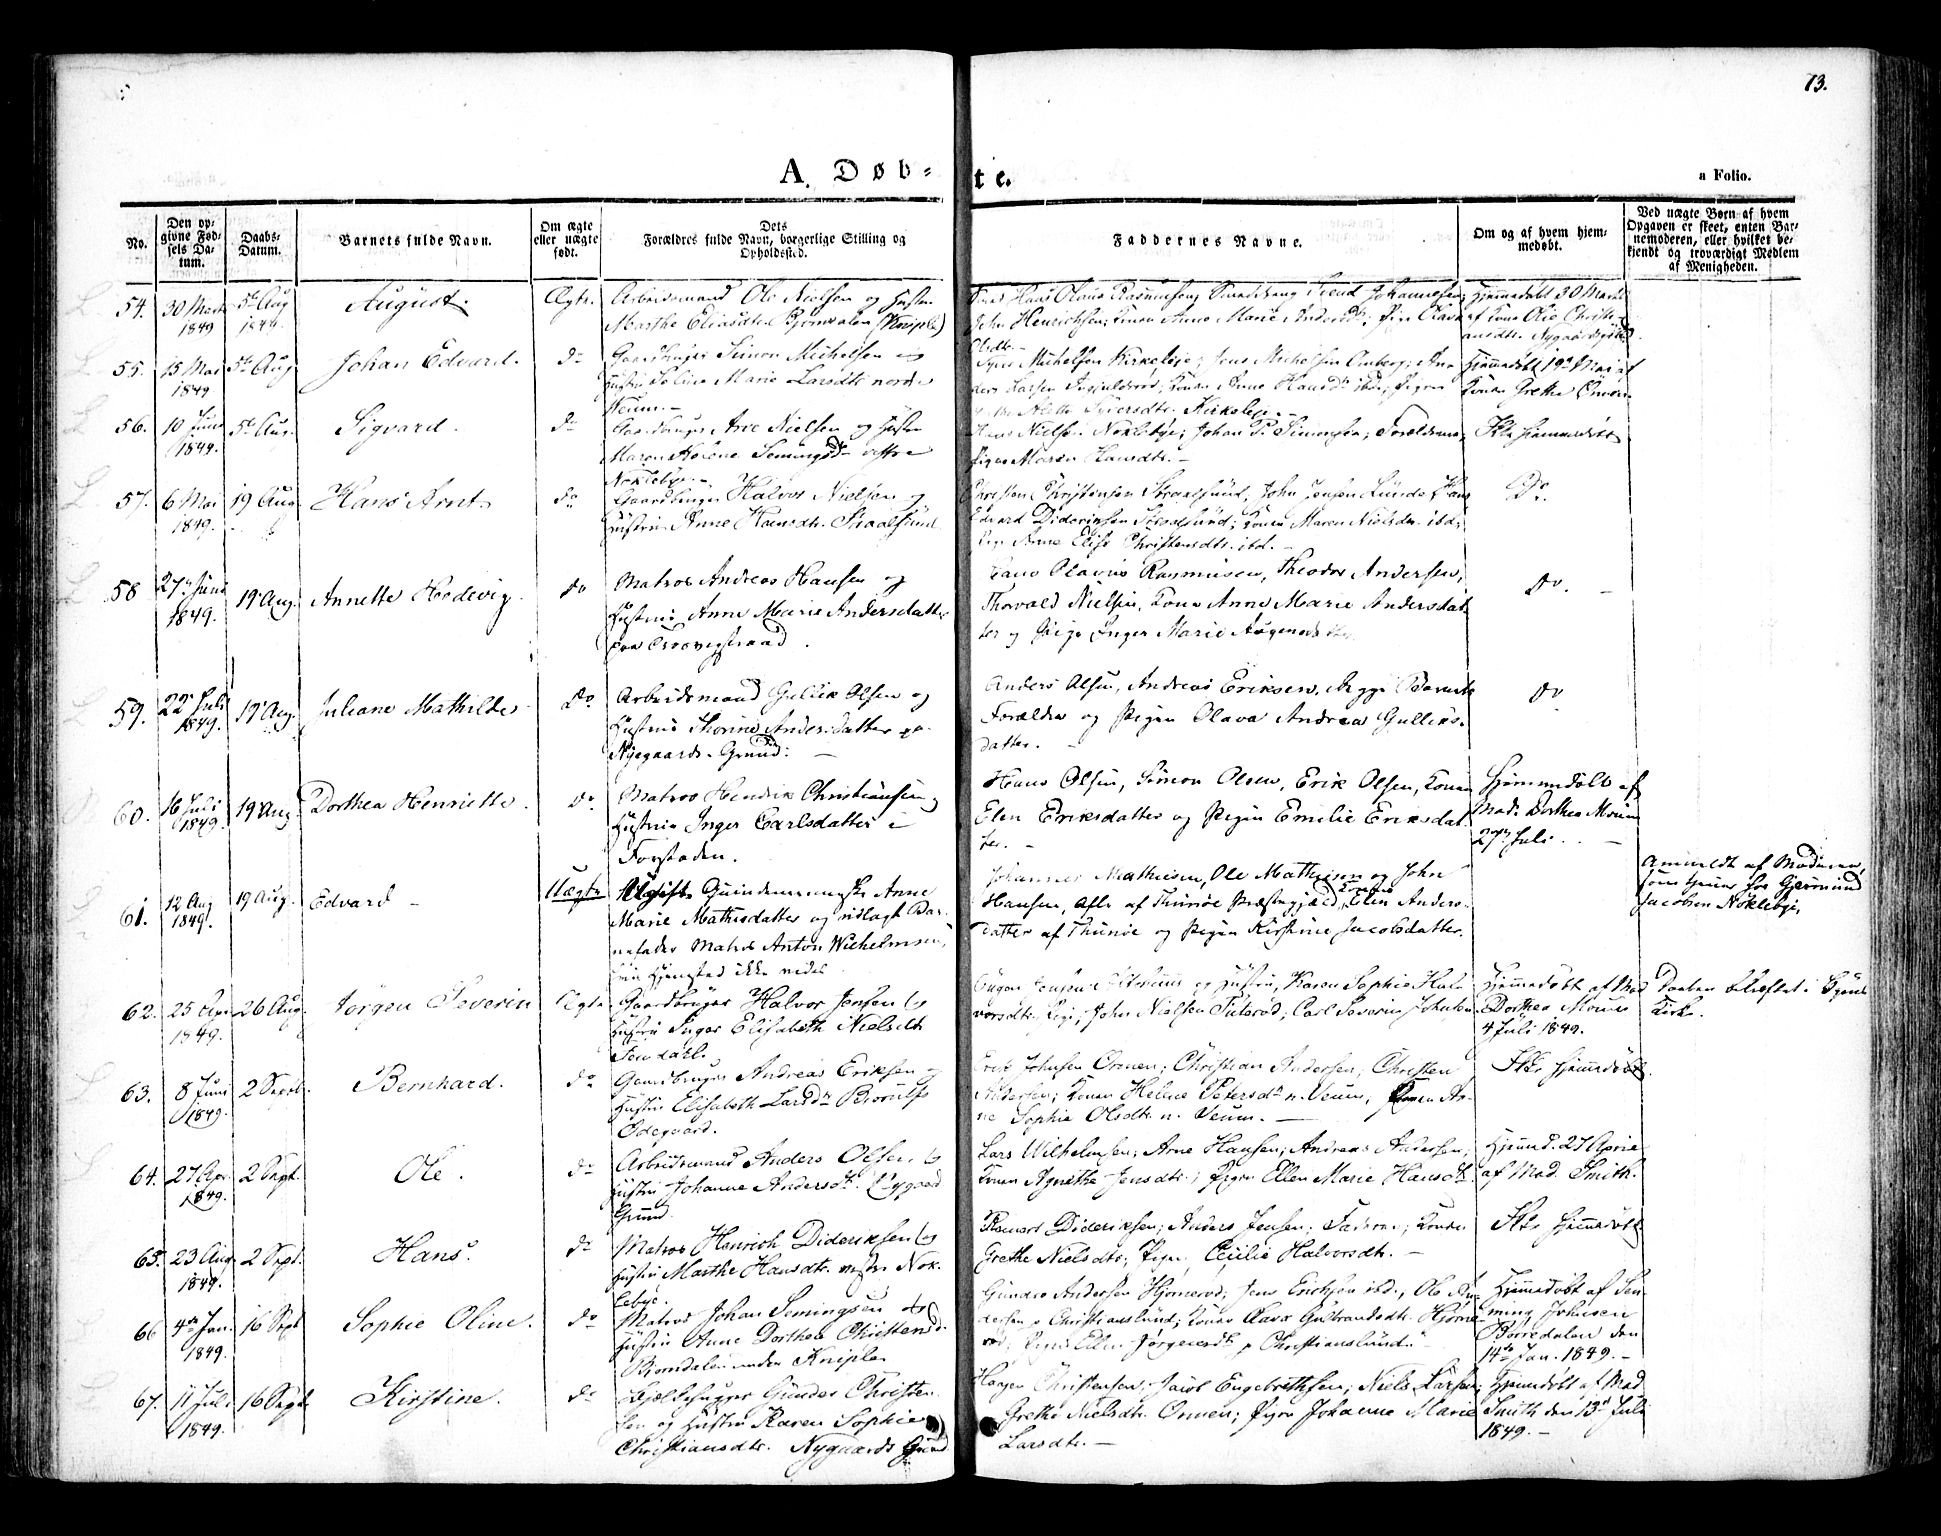 13.
A. Døb=
te.
a Folio.
No.
Den op=
givne Fød=
sels Da=
tum.
Daabs=
Datum.
Barnets fulde Navn.
Om ægte
eller uægte
født.
Dets
Forældres fulde Navn, borgerlige Stilling og
Opholdssted.
Faddernes Navne.
Om og af hvem hjem=
medøbt.
Ved uægte Børn af hvem
Opgaven er skeet, enten Bar=
nemoderen, eller hvilket be=
kjendt og troværdigt Medlem
af Menigheden.
54. 30 Marts 1849 5te Aug 1849. August. Ægte.
Arbeidsmand Ole Nielsen og Hustru
Marthe Eliasdtr. Bjørndalen (Kniple)
Hans Olaus Rasmussen; Johannesen;
John Henrichsen; Konen Anne Marie Andersdtr; Pigen Olava
Olsdtr.
Hjemmedøbt 30 Marts
af Kone Olea Christi-
ansdtr. Nygaardsgrund.
55. 15 Mai 1849 5te Aug Johan Edvard. do
Gaardbruger Simon Michelsen og
Hustru Marie Larsdtr nordre
Veum.
Michelsen Kirkeløje; Jens Michelsen Omberg; An
ders Larsen; Konen Anne Hansdtr ibd; Pigen
Kirkeløje.
Hjemmedøbt 19de Mai af
Konen Grethe Ormen
56. 10 Juni 1849. 5te Aug. Sigvard. do
Gaardbruger Arne Nielsen og Hustru
Maren Helene Semingsdtr vestre
Nøklebye.
Hans Nielsen Nøklebye; Johan P. Simonsen; Forældrene;
Pigen Maren Hansdtr.
Ikke hjemmedøbt
57. 6 Mai 1849. 19 Aug. Hans Arnt. do
Gaardbruger Halvor Nielsen og
Hustru Anne Hansdtr. Straalsund
Christen Christensen Straalsund, John Jensen Lunde; Hans
Edvard Diderichsen Straalsund; Konen Maren Nielsdtr. ibd;
Pigen Anne Elise Christensdtr. ibd.
Do.
58 27de Juni 1849. 19 Aug. Annette Hedevig. do
Matros Andreas Hansen og
Hustru Anne Marie Andersdatter
paa
Hans Olavus Rasmussen, Theodor Andersen,
Thorvald Nielsen, Kone Anne Marie Andersdat
ter og Pige Inger Marie
do.
59. 22de Juli 1849. 19 Aug. Juliane Mathilde do.
Arbeidsmand Gullik Olsen og
Hustru Thorine Andersdatter pr.
Nygaards-Grund.
Anders Olsen, Andreas Eriksen, begge Barnets
Forældre og Pigen Olava Andrea Gulliks-
datter.
do
60. 16 Juli 1849. 19 Aug. Dorthea Henriette. do.
Matros Hendrik Christiansen og
Hustru Inger Carlsdatter i
Forstaden.
Hans Olsen, Simon Olsen, Erik Olsen, Konen
Elen Eriksdatter og Pigen Emilie Eriksdat-
ter.
Hjemmedøbt af
Mad. Dorthea Moum
27de Juli.
61. 12 Aug 1849. 19 Aug. Edvard Uægte
Ugift Quindemenneske Anne
Marie Mathisdatter og udlagt Bar-
nefader Matros Anton Wilhelmsen,
hvis Hjemsted ikke vides
Johannes Mathisen, Ole Mathisen og John
Hansen, Alle af Thunøe Præstegjæld, Konen Elen Anders-
datter af Thunøe og Pigen Kirstine Jacobsdatter.
Anmeldt af Moderen,
som tjener hos Gjermund
Jacobsen Nøklebye.
62. 25 Apr. 1849. 26 Aug. Jørgen Severin Ægte
Gaardbruger Halvor Jensen og
Hustru Inger Elisabeth Nielsdtr
Jensen og Hustru, Karen Sophie Hal-
vorsdtr. Pige; John Nielsen; Carl Severin Johnsen
Hjemmedøbt af Mad
Dorthea Moum
4 Juli 1849.
Daaben bekræftet i
Kirke.
63. 8 Juni 1849. 2 Septb. Bernhard. do
Gaardbruger Andreas Eriksen og
Hustru Elisabeth Larsdtr
Ødegaard.
Erik Johnsen Ormen; Christian Andersen; Christen
Andersen; Konen Helene Petersdtr n. Veum, Konen An-
ne Sophie Olsdtr. n. Veum.
Ikke hjemmedøbt.
64. 27 Apr. 1849. 2 Sept. Ole. do
Arbeidsmand Anders Olsen og
Hustru Johanne Andersdtr. Nygaard
Grund.
Lars Wilhelmsen; Arne Hansen; Andreas Andersen;
Konen Agnethe Jensdtr.; Pigen Ellen Marie Hansdtr.
Hjemmed. 27 Aprie
af Mad. Smith.
65. 23 Aug. 1849. 2 Sept. Hans. do
Matros Henrich Dideriksen og
Hustru Marthe Hansdtr. vestre Nøk-
lebye.
Dideriksen; Anders Jensen; Faderen; Konen
Grethe Nielsdtr; Pigen Cecilie Halvorsdtr.
Ikke hjemmedøbt
66 4de Jan. 1849. 16 Sept Sophie Oline. do
Matros Johan Semingsen og
Hustru Anne Dorthea Christensd.
Bjørndalen under Kniple
Gunder Andersen Hjørnerød; Jens Erichsen ibd., Ole An-
dersen p Christianslund; Konen Gulbrandsdtr. Hjørne-
rød; Pigen Ellen Jørgensdtr p Christianslund.
Hjemmedøbt af Sem-
ming Johnsen
Børredalen den
14de Jan. 1849.
67. 11 Juli 1849. 16 Sept Kirstine. do
Gunder Christen-
sen og Hustru Karen Sophie
Christiansdtr. Nygaards Grund
Hagen Christensen; Jacob Engebrethsen; Niels Larsen;
Grethe Nielsdtr. Ormen; Pigen Johanne Marie
Larsdtr.
Hjemmedøbt af Mad
Smith den 13de Juli
1849.